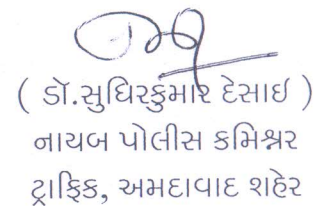 ( ડૉ.સુધિરકુમાર દેસાઇ )
નાયબ પોલીસ કમિશ્નર
ટ્રાફિક, અમદાવાદ શહેર